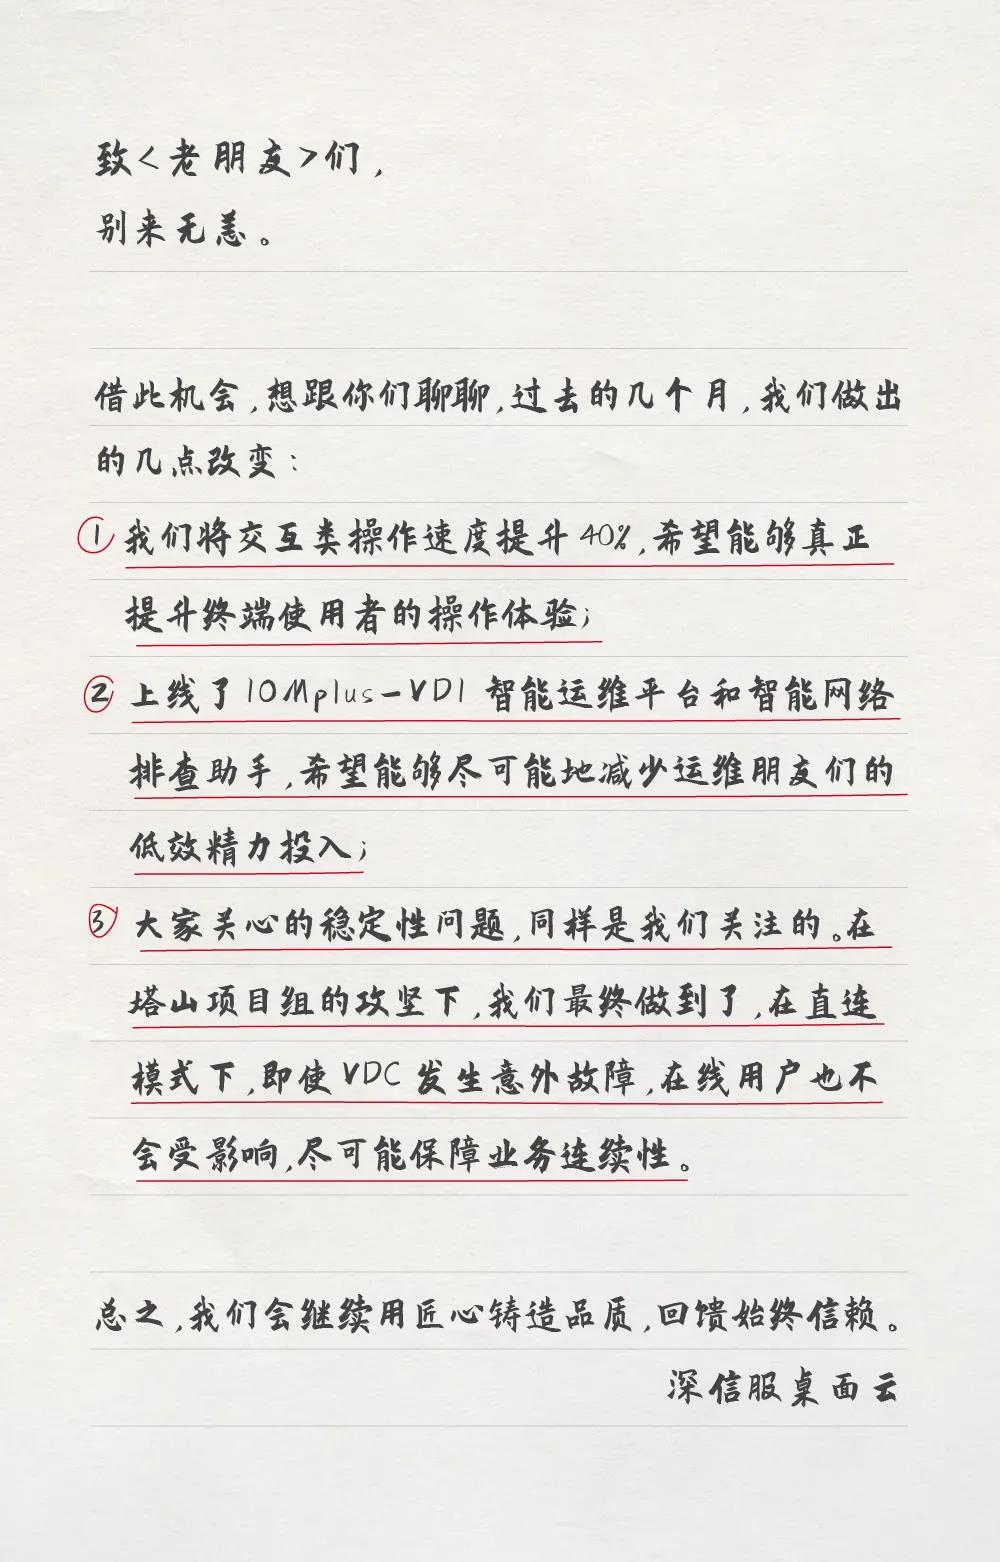 致<老朋友>们，
别来无恙。
借此机会，想跟你们聊聊，过去的几个月，我们做出
的几点改变：
① 我们将交互类操作速度提升40%，希望能够真正
提升终端使用者的操作体验；
② 上线了IOMplus-VDI 智能运维平台和智能网络
排查助手，希望能够尽可能地减少运维朋友们的
低效精力投入；
③ 大家关心的稳定性问题，同样是我们关注的。在
塔山项目组的攻坚下，我们最终做到了，在直连
模式下，即使VDC发生意外故障，在线用户也不
会受影响，尽可能保障业务连续性。
总之，我们会继续用匠心铸造品质，回馈始终信赖。
深信服桌面云